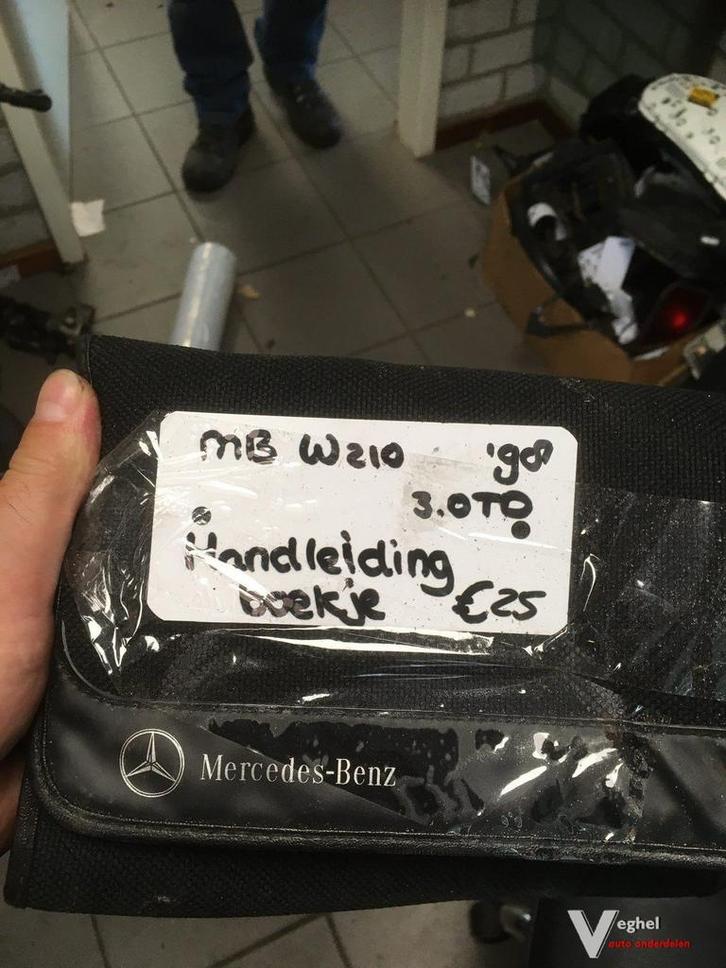 MB W210 '98
3.0TD
Handleiding
boekje €25
Mercedes-Benz
Veghel
auto onderdelen